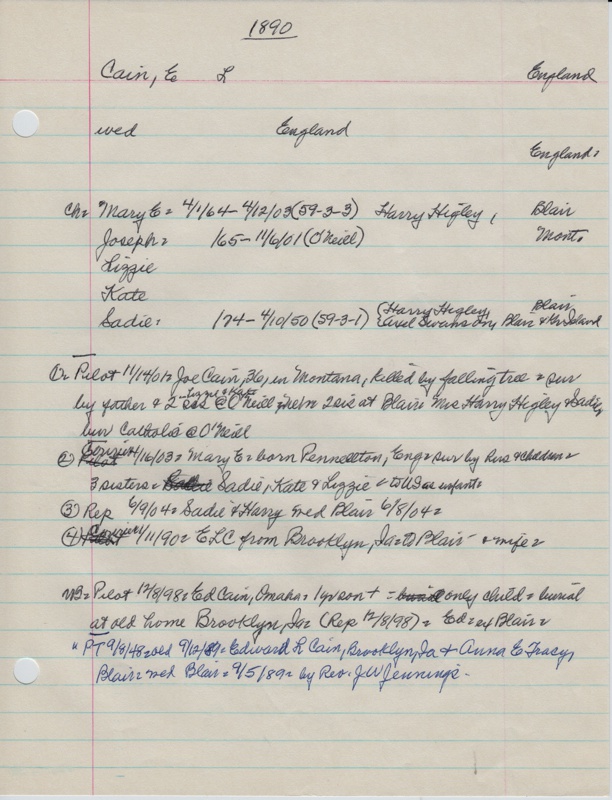 1890
Cain, E L England
wed England
England=
Ch= Mary E= 4/1/64-4/12/03 (59-3-3) Harry Higley, Blair
Joseph= /65-11/6/01 (O'Neill) Mont.
Lizzie
Kate
Sadie= /74-4/10/50 (59-3-1) (Harry Higley, Blair
Swanson, Blair & Gr Island
Or Pilot 11/14/01= Joe Cain, 36, in Montana, killed by falling tree = sur
by father & 2 sis Lizzie & Kate @ O'Neill 2 sis at Blair Mrs Harry Higley & Sadie,
bur Catholic @ O'Neill
(2) Courier 4/16/03= Mary E= born Pennellton, Eng= sur by hus & children=
3 sisters= Sadie, Kate & Lizzie = to US as infant=
(3) Rep 6/9/04= Sadie & Harry wed Blair 6/8/04=
(4) Courier 1/11/90= ELC from Brooklyn, Ia= to Blair- & wife=
NB= Pilot 12/8/98= Ed Cain, Omaha= 1 yr son + = only child= burial
at old home Brooklyn, Ia= (Rep 12/8/98) = Ed= ex Blair=
" PT 9/8/48= old 9/12/89= Edward L Cain, Brooklyn, Ia & Anna E Tracy,
Blair= wed Blair= 9/5/89= by Rev. JW Jennings-